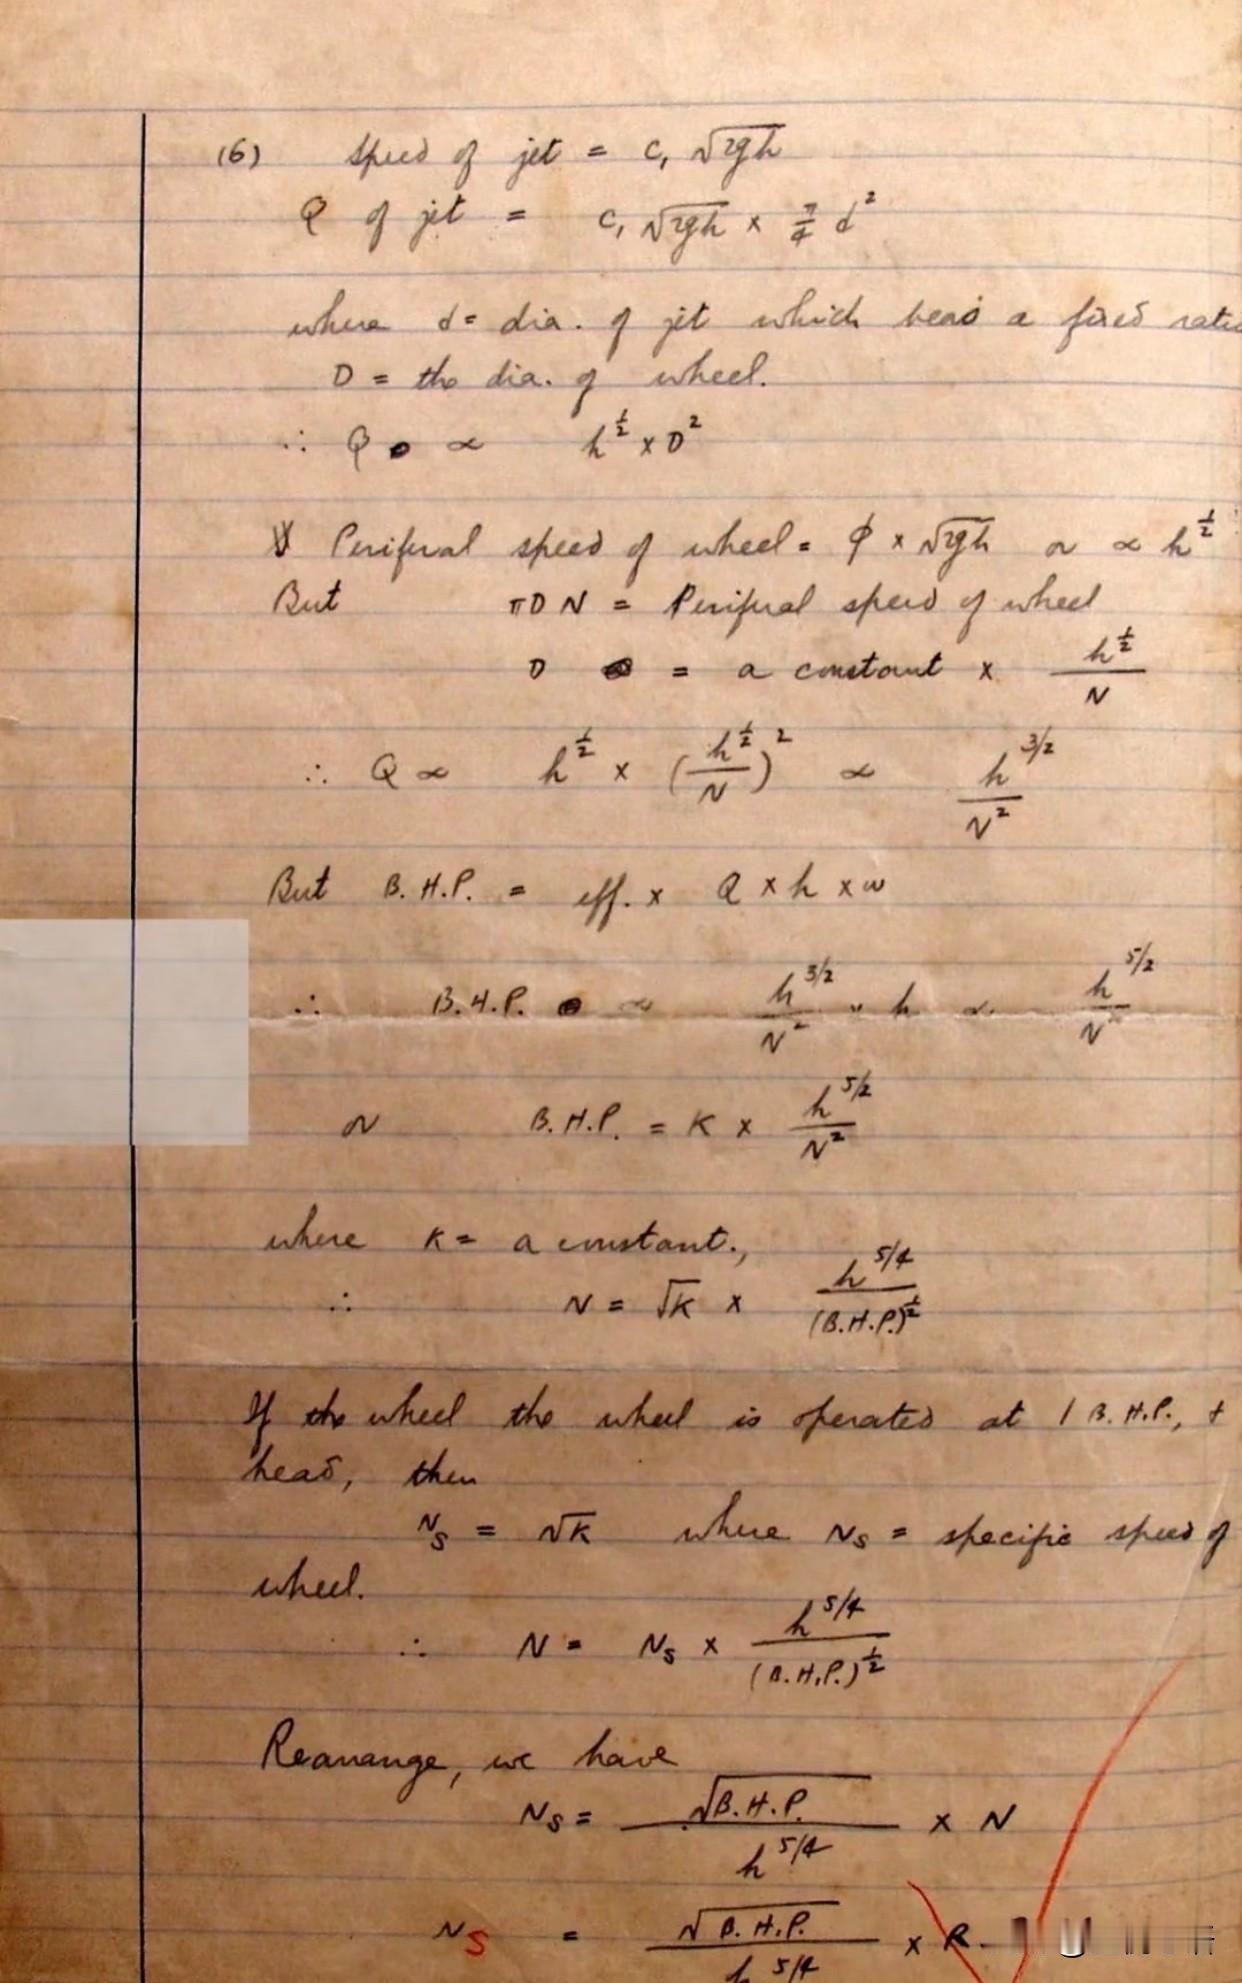 (6) Speed of jet = C₁ √2gh
Q of jet = C₁ √2gh × π/4 d²
where d = dia. of jet which bears a fixed ratio
D = the dia. of wheel.
∴ Q ∝ h^½ × D²
Periferal speed of wheel = φ × √2gh or ∝ h^½
But πDN = Periferal speed of wheel
D = a constant × h^½/N
∴ Q ∝ h^½ × (h^½/N)² ∝ h^3/2/N²
But B.H.P. = eff. × Q × h × w
∴ B.H.P. ∝ h^3/2/N² × h ∝ h^5/2/N²
or B.H.P. = K × h^5/2/N²
where K = a constant.,
∴ N = √K × h^5/4/(B.H.P.)^½
If the wheel the wheel is operated at 1 B.H.P.,
head, then
Ns = √K where Ns = specific speed of
wheel.
∴ N = Ns × h^5/4/(B.H.P.)^½
Rearrange, we have
Ns = √B.H.P./h^5/4 × N
Ns = √B.H.P./h^5/4 × R.